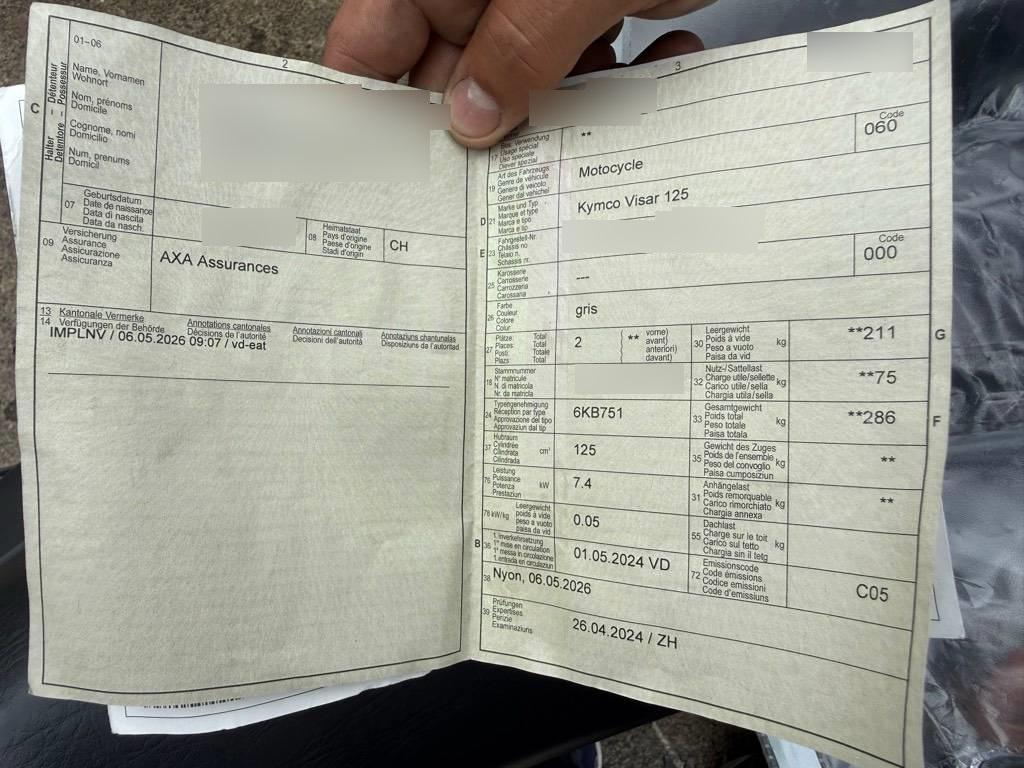 01-06
2
3
C
Halter – Détenteur
Detentore – Possessur
Name, Vornamen
Wohnort
Nom, prénoms
Domicile
Cognome, nomi
Domicilio
Num, prenums
Domicil
07
Geburtsdatum
Date de naissance
Data di nascita
Data da nasch.
08
Heimatstaat
Pays d'origine
Paese d'origine
Stadi d'origin
CH
09
Versicherung
Assurance
Assicurazione
Assicuranza
AXA Assurances
13 Kantonale Vermerke
14 Verfügungen der Behörde
Annotations cantonales
Décisions de l'autorité
Annotazioni cantonali
Decisioni dell'autorità
Annotaziuns chantunalas
Disposiziuns da l'autoritad
IMPLNV / 06.05.2026 09:07 / vd-eat
17
Bes. Verwendung
Usage spécial
Uso speciale
Diever spezial
**
19
Art des Fahrzeugs
Genre de véhicule
Genere di veicolo
Gener dal vehichel
Motocycle
Code
060
D
21
Marke und Typ
Marque et type
Marca e tipo
Marca e tip
Kymco Visar 125
E
23
Fahrgestell-Nr.
Châssis no
Telaio n.
Schassis nr.
25
Karosserie
Carrosserie
Carrozzeria
Carossaria
---
Code
000
26
Farbe
Couleur
Colore
Colur
gris
27
Plätze: Total
Places: Total
Posti: Totale
Plazs: Total
2
(** vorne)
avant)
anteriori)
davant)
30
Leergewicht
Poids à vide
Peso a vuoto
Paisa da vid
kg
**211
G
18
Stammnummer
N° matricule
N. di matricola
Nr. da matricla
32
Nutz-/Sattellast
Charge utile/sellette
Carico utile/sella
Chargia utila/sella
kg
**75
24
Typengenehmigung
Réception par type
Approvazione del tipo
Approvaziun dal tip
6KB751
33
Gesamtgewicht
Poids total
Peso totale
Paisa totala
kg
**286
F
37
Hubraum
Cylindrée
Cilindrata
Cilindrada
cm³
125
35
Gewicht des Zuges
Poids de l'ensemble
Peso del convoglio
Paisa cumposiziun
kg
**
76
Leistung
Puissance
Potenza
Prestaziun
kW
7.4
31
Anhängelast
Poids remorquable
Carico rimorchiato
Chargia annexa
kg
**
78 kW/kg
Leergewicht
poids à vide
peso a vuoto
paisa da vid
0.05
55
Dachlast
Charge sur le toit
Carico sul tetto
Chargia sin il tetg
kg
B
36
1. Inverkehrsetzung
1re mise en circulation
1a messa in circolazione
1. entrada en circulaziun
01.05.2024 VD
72
Emissionscode
Code émissions
Codice emissioni
Code d'emissiuns
C05
38
Nyon, 06.05.2026
39
Prüfungen
Expertises
Perizie
Examinaziuns
26.04.2024 / ZH